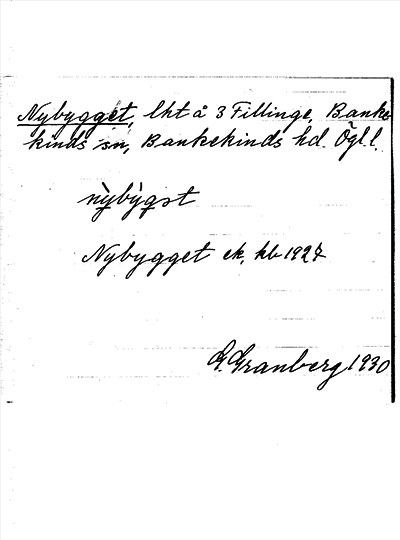 Nybygget, lht å 3 Fillinge, Banke-
kinds sn, Bankekinds hd. Ögl.l.
nỳbỳgst
Nybygget ek, kb 1927
G. Granberg 1930